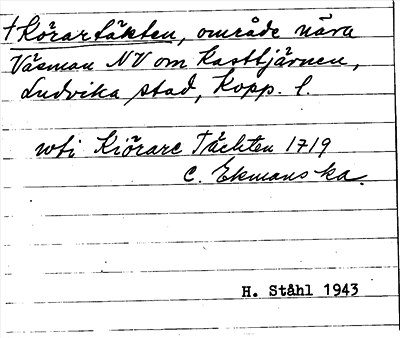 † Körartäkten, område nära
Väsman NV om Kasttjärnen,
Ludvika stad, Kopp. l.
uti Kiörare Tächten 1719
C. Ekmans ka.
H. Ståhl 1943